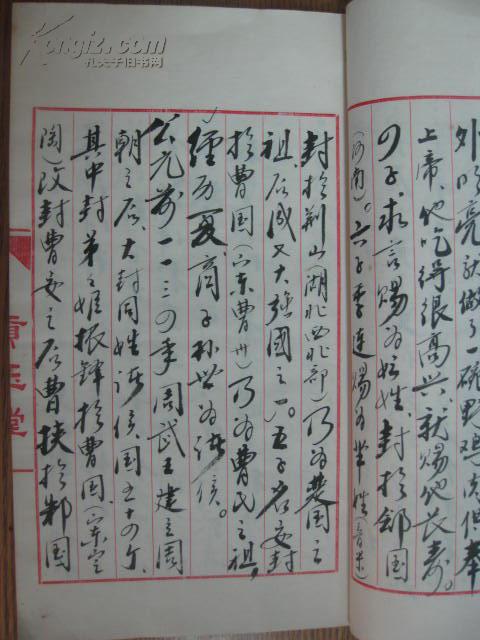 外的亮就做了一碗野鸡肉但奉
上帝,他吃得很高兴,就赐他长寿。
の子,求言赐为妘姓,封於郐国
(河南)。六子季连赐为芈姓(音米)
封於荆山(湖北西北部)乃为楚国之
祖,后成又大强国之一。五子名安封
於曹国(山东曹州)乃为曹氏之祖,
经历夏商子孙世为诸侯。
公元前一一三の年周武王建立周
朝之后,大封同姓诸侯国五十の个,
其中封弟之姬振铎於曹国,(山东定
陶)改封曹安之后曹挟於邾国
宝玉堂
Kongfz.com
孔夫子旧书网